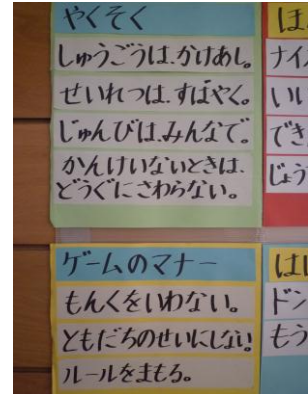 やくそく
しゅうごうは、かけあし。
せいれつは、すばやく。
じゅんびは、みんなで。
かんけいないときは、
どうぐにさわらない。
ゲームのマナー
もんくをいわない。
ともだちのせいにしない
ルールをまもる。
ナイ
いい
でき
じょう
はし
ドン
もう